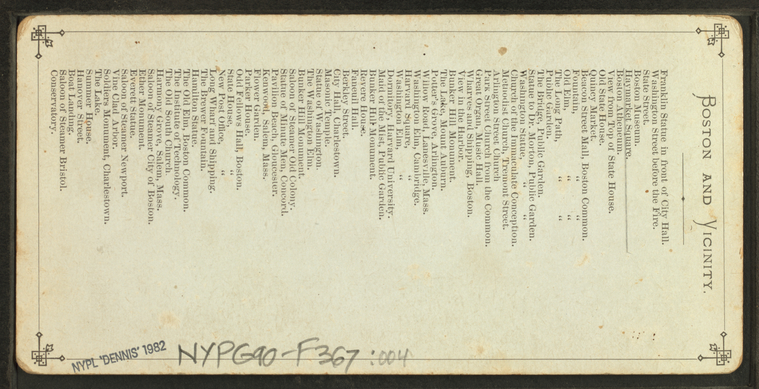 BOSTON AND VICINITY.
Franklin Statue in front of City Hall.
Washington Street before the Fire.
State Street.
Haymarket Square.
Boston Museum.
Boston Athenæum.
View from Top of State House.
Old State House.
Quincy Market.
Beacon Street Mall, Boston Common.
Fountain, " "
Old Elm, " "
The Long Path, " "
Public Garden.
The Bridge, Public Garden.
Statue to Morton, Public Garden.
Washington Statue, " "
Church of the Immaculate Conception.
Methodist Church, Tremont Street.
Arlington Street Church.
Park Street Church from the Common.
Great Organ, Music Hall.
Wharves and Shipping, Boston.
View in the Harbor.
Bunker Hill Monument.
The Lake, Mount Auburn.
Potter's Grove, Arlington.
Willow Road, Lanesville, Mass.
Washington Elm, Cambridge.
Harvard Square, "
Washington Elm, "
Dormitory, Harvard University.
Maid of the Mist, Public Garden.
Bunker Hill Monument.
Revere House.
Faneuil Hall.
Berkley Street.
City Hall, Charlestown.
Masonic Temple.
Statue of Washington.
The Washington Elm.
Bunker Hill Monument.
Saloon of Steamer Old Colony.
Statue of Minute Men, Concord.
Pavilion Beach, Gloucester.
Kenwood, Salem, Mass.
Flower Garden.
Parker House.
Odd Fellows Hall, Boston.
State House, "
New Post Office, "
Long Wharf and Shipping.
The Brewer Fountain.
Hamilton Statue.
The Old Elm, Boston Common.
The Institute of Technology.
The Old South Church.
Harmony Grove, Salem, Mass.
Saloon of Steamer City of Boston.
Ether Monument.
Everett Statue.
Saloon of Steamer Newport.
Vine Clad Arbor.
Soldiers Monument, Charlestown.
The Lake.
Summer House.
Hanover Street.
Boat Landing.
Saloon of Steamer Bristol.
Conservatory.
NYPL "DENNIS" 1982
NYPG90-F367:004